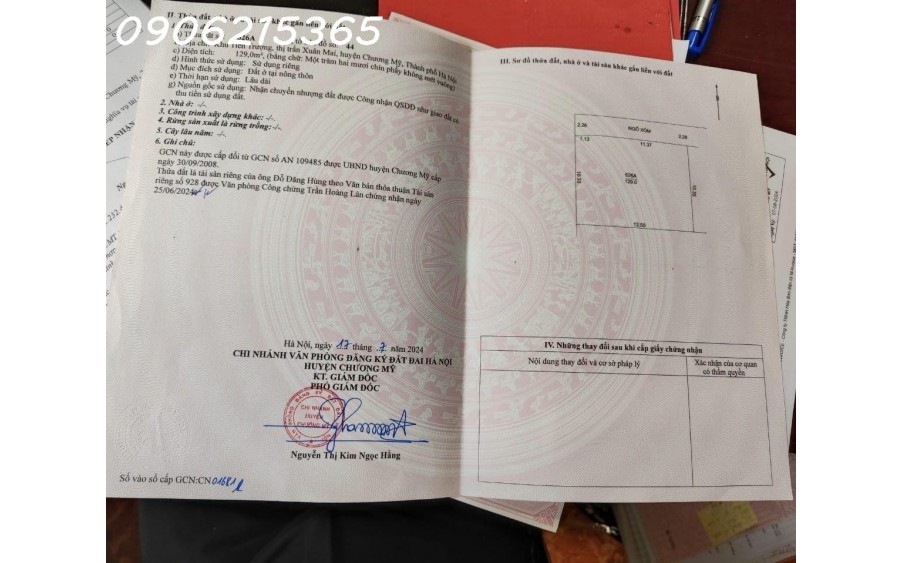 0906215365
II. Thửa đất, nhà ở và tài sản khác gắn liền với đất
1. Thửa đất:
thị trấn Xuân Mai, huyện Chương Mỹ, Thành phố Hà Nội
c) Diện tích: 129,0m², (bằng chữ: Một trăm hai mươi chín phẩy không mét vuông)
d) Hình thức sử dụng: Sử dụng riêng
đ) Mục đích sử dụng: Đất ở tại nông thôn
e) Thời hạn sử dụng: Lâu dài
g) Nguồn gốc sử dụng: Nhận chuyển nhượng đất được Công nhận QSDĐ như giao đất có
thu tiền sử dụng đất.
2. Nhà ở: -/-
3. Công trình xây dựng khác: -/-
4. Rừng sản xuất là rừng trồng: -/-
5. Cây lâu năm: -/-
6. Ghi chú:
GCN này được cấp đổi từ GCN số AN 109485 được UBND huyện Chương Mỹ cấp
ngày 30/09/2008.
Thửa đất là tài sản riêng của ông Đỗ Đăng Hùng theo Văn bản thỏa thuận Tài sản
riêng số 928 được Văn phòng Công chứng Trần Hoàng Lân chứng nhận ngày
25/06/2024
Hà Nội, ngày 17 tháng 7 năm 2024
CHI NHÁNH VĂN PHÒNG ĐĂNG KÝ ĐẤT ĐAI HÀ NỘI
HUYỆN CHƯƠNG MỸ
KT. GIÁM ĐỐC
PHÓ GIÁM ĐỐC
CHI NHÁNH
HUYỆN
CHƯƠNG MỸ
Nguyễn Thị Kim Ngọc Hằng
Số vào sổ cấp GCN:CN01681
III. Sơ đồ thửa đất, nhà ở và tài sản khác gắn liền với đất
B
2.26 NGÕ XÓM 2.26
1.13 11.37
626A
129.0
10.32
13.00
IV. Những thay đổi sau khi cấp giấy chứng nhận
Nội dung thay đổi và cơ sở pháp lý
Xác nhận của cơ quan
có thẩm quyền